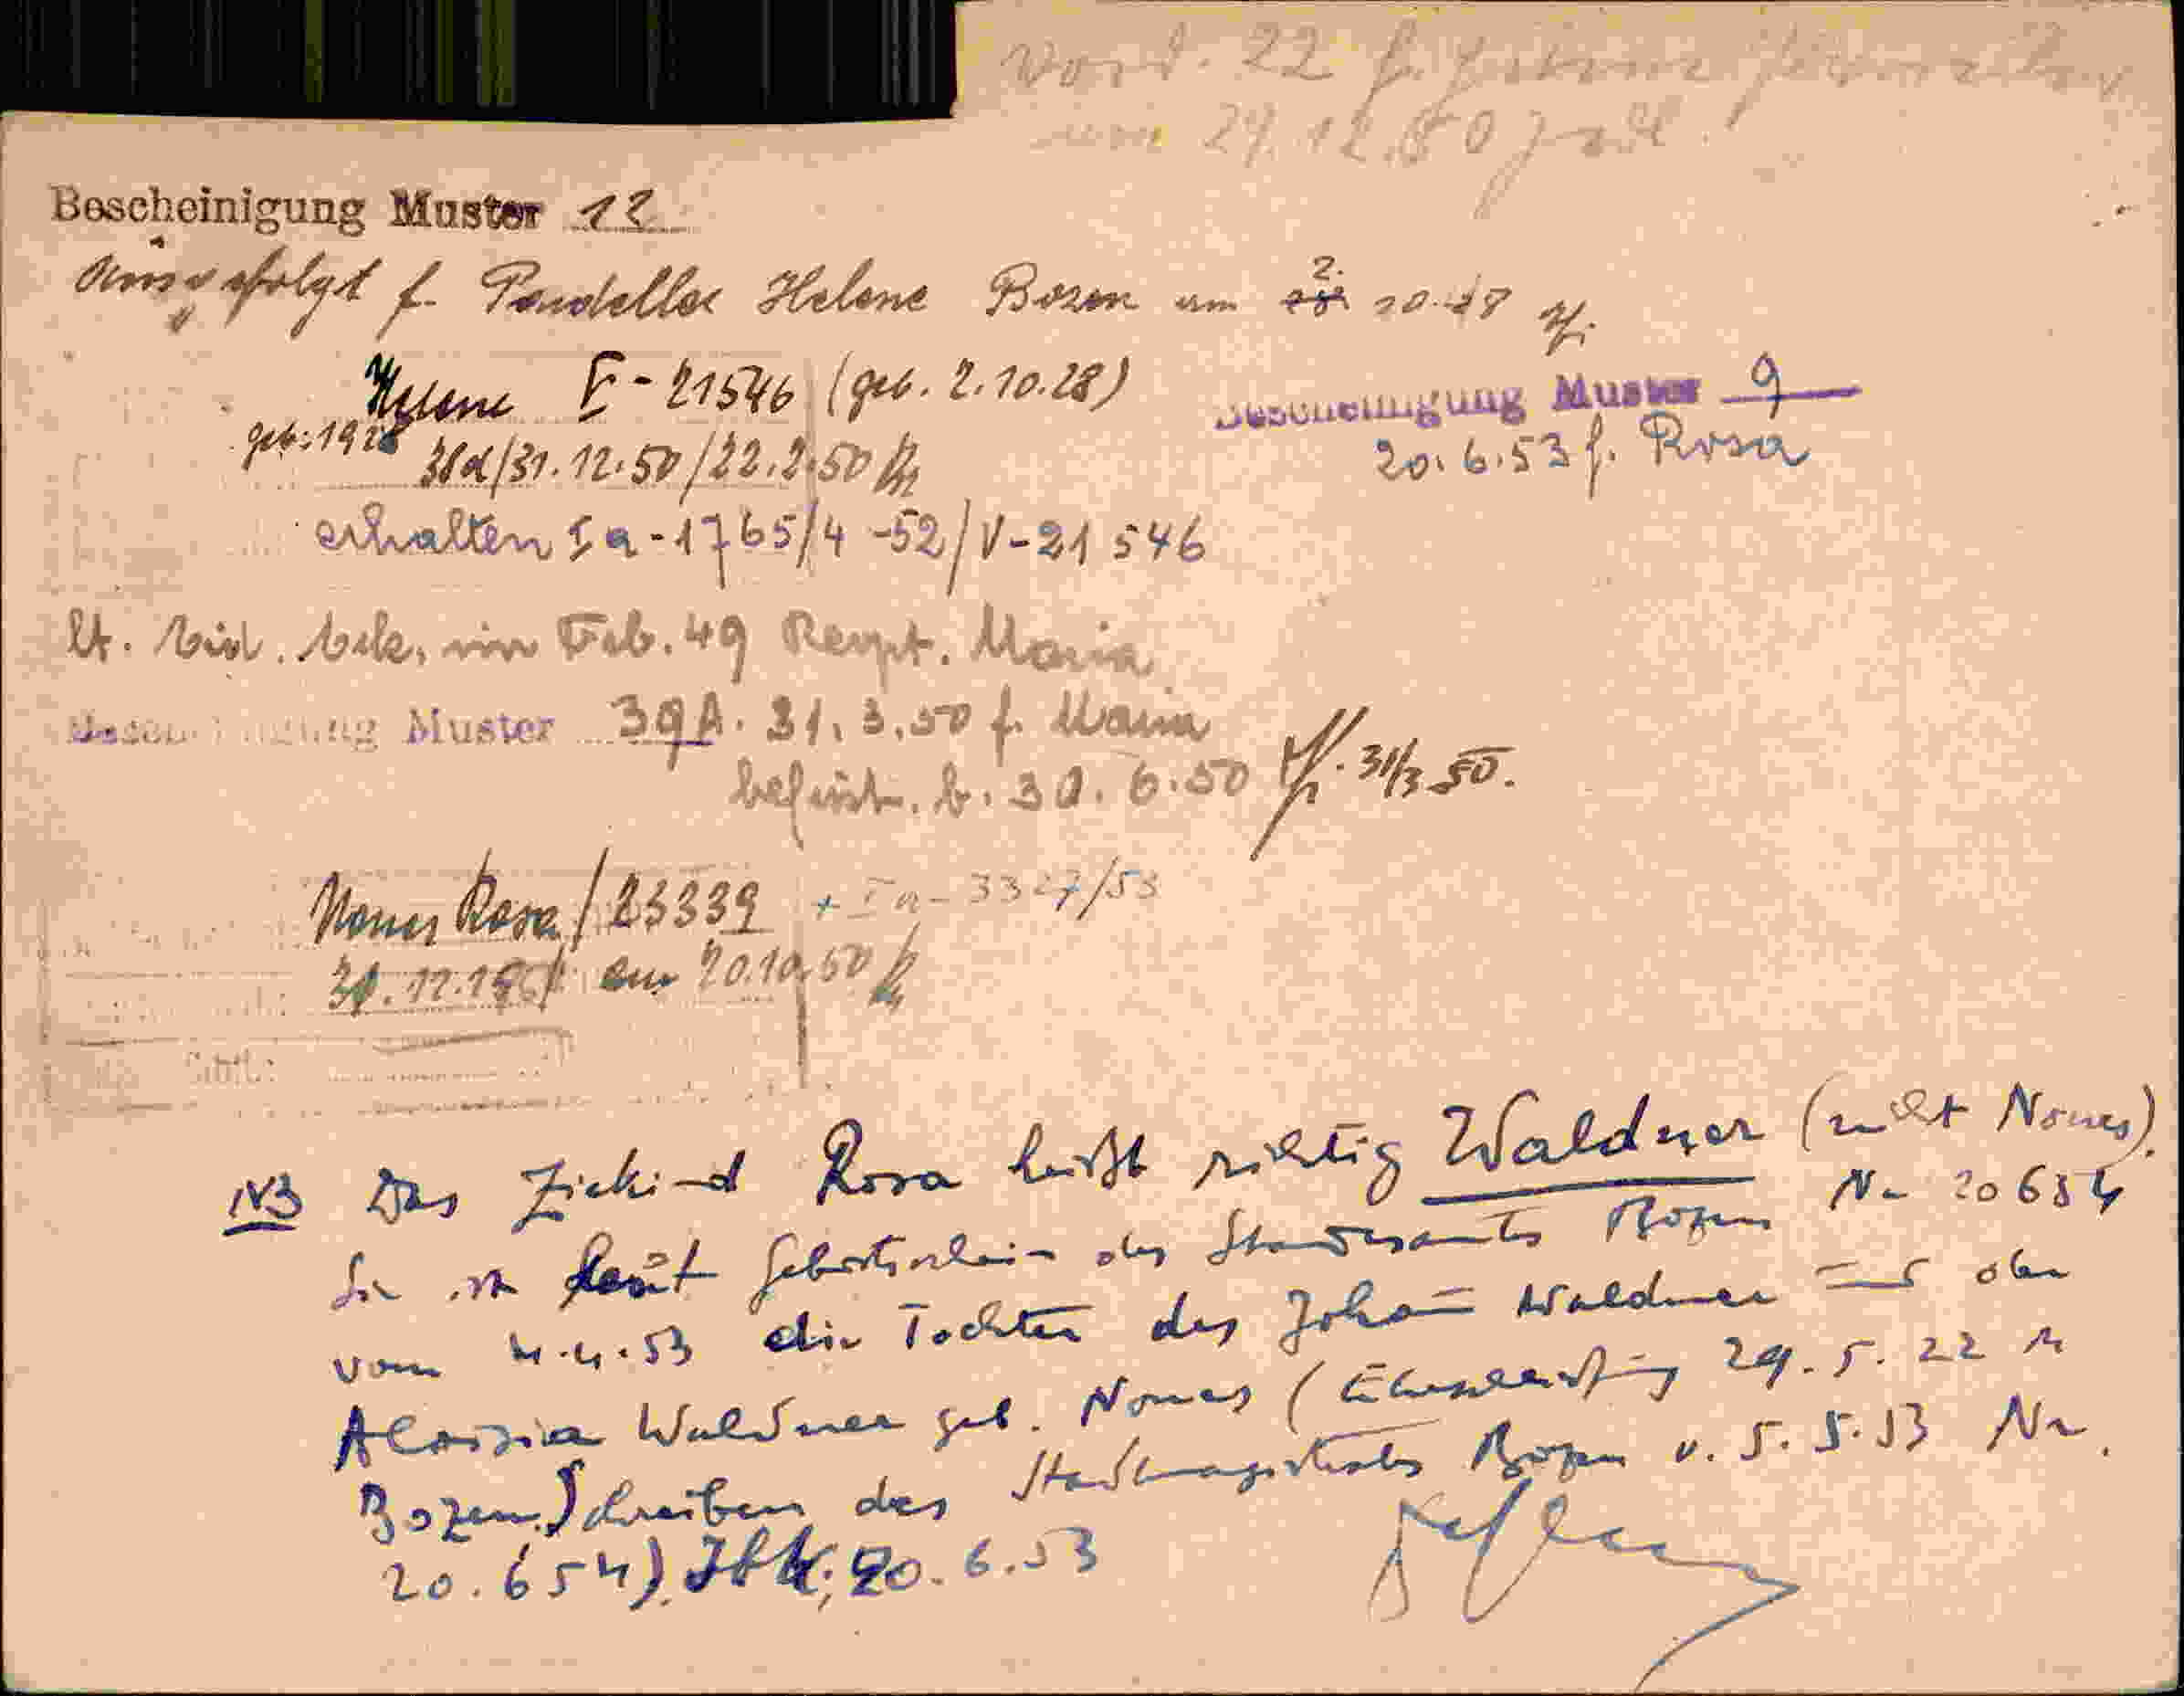 Vord. 22 f.
29.12.50
Bescheinigung Muster 12
Ausgefolgt f. Helene Bozen am 2. 10.48
Helene E - 21546 (geb. 2.10.28)
geb: 1928
Bescheinigung Muster 9
31.12.50/22.2.50
20.6.53 f. Rosa
erhalten Ia - 1765/4 - 52/V - 21 546
lt. Feb. 49 Rempt. Maria
Bescheinigung Muster 39A. 31.3.50 f. Maria
befrist. b. 30. 6. 50 31/3 50.
Nones Rosa / 23339 + Ia - 3327/53
am 20.10.50
NB Das Ziehkind Rosa heißt richtig Waldner (nicht Nones).
Sie ist laut Geburtsschein des Standesamts Bozen Nr 20654
vom 4.4.53 die Tochter des Johann Waldner und der
Aloisia Waldner geb. Nones (Eheschließung 29. 5. 22 in
Bozen. Schreiben des Stadtmagistrats Bozen v. 5. 5. 53 Nr.
20.654). Ibk, 20. 6. 53